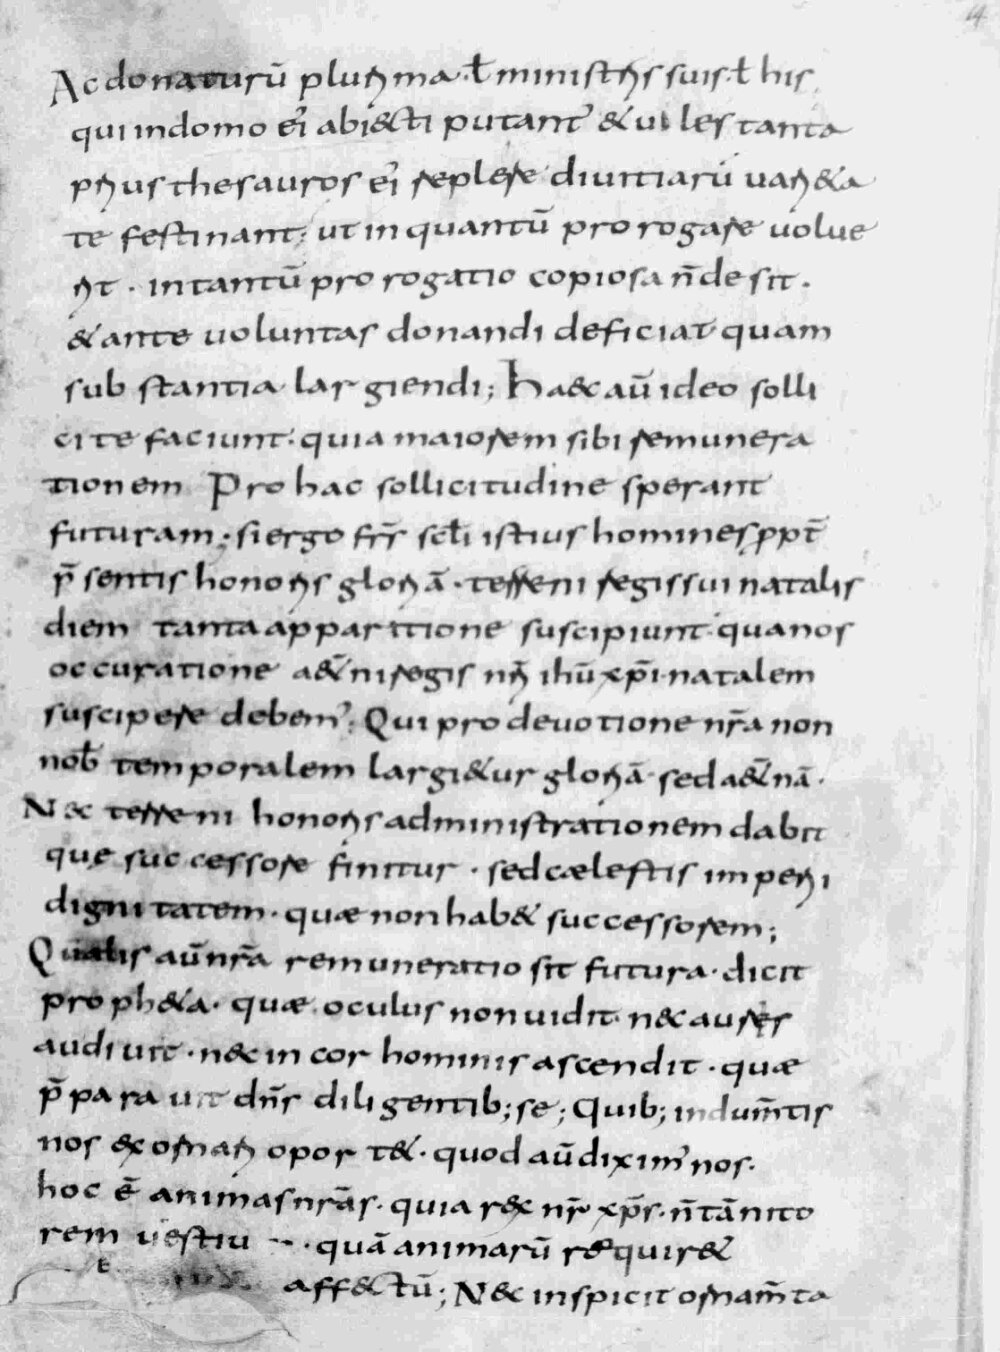 14
Ac donaturū pluri ma· ł ministris suis· ł his
qui in domo ei abiecti putant᷒ & ui les tanta
prius thesauros ei replere diuitiarū uari&a
te festinant; ut in quantū pro rogare uolue
rit · in tantū pro rogatio copiosa n̄ desit ·
& ante uoluntas donandi deficiat quam
sub stantia lar giendi; Haec aū ideo solli
ci te faciunt· quia maiorem sibi remunera
tionem Pro hac sollicitudine sperant
futuram· si ergo fr̄r scłi istius homines ꝓpt̄
p̄ sentis honoris gloriā · terreni regis sui natalis
diem tanta apparitione suscipiunt· qua nos
occuratione aet̄ni regis nr̄i ihū xp̄i· natalem
suscipere debem᷒; Qui pro deuotione nr̄a non
nob̄ temporalem largi&ur gloriā· sed aet̄nā ·
Nec terreni honoris administrationem dabit
que suc cessore finitur · sed cælestis imperii
dignitatem · quæ non hab& successorem;
Qualis aū nr̄a remuneratio sit futura· dicit
proph&a· quæ oculus non uidit nec aures
audi uit · nec in cor hominis ascendit · quæ
p̄ pa ra uit dn̄s dili gentib; se; Quib; indum̄tis
nos exornari opor t&· quod aū dixim᷒ nos·
hoc ē animas nr̄as· quia rex nr̄ xp̄s· n̄ tā nito
rem uestiu · quā animarū requir&
affectū; Nec inspicit ornam̄ta